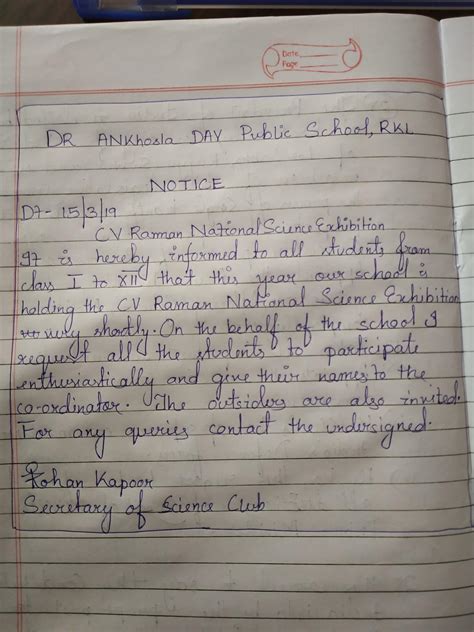 Date
Page
DR ANKhosla DAV Public School, RKL
NOTICE
DT- 15/3/19
CV Raman National Science Exhibition
It is hereby informed to all students from
class I to XII that this year our school is
holding the CV Raman National Science Exhibition
very shortly. On the behalf of the school I
request all the students to participate
enthusiastically and give their names to the
co-ordinator. The outsiders are also invited.
For any queries contact the undersigned.
Rohan Kapoor
Secretary of Science Club